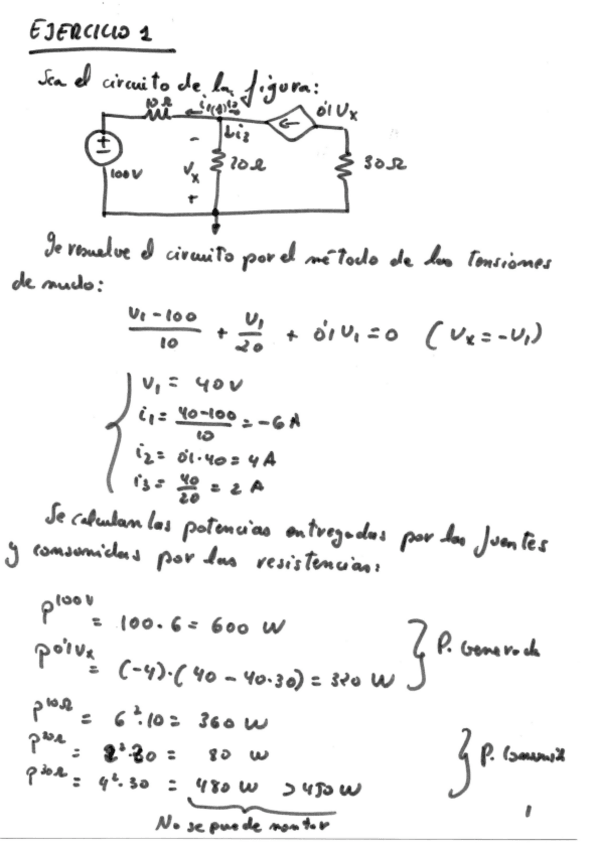 EJERCICIO 1
Sea el circuito de la figura:
10 Ω i₁ (1) i₂ 0'1 Uₓ
± 100V - Vₓ + ↓i₃ 20Ω 30Ω
Se resuelve el circuito por el método de las tensiones
de nudo:
(U₁ - 100)/10 + U₁/20 + 0'1 U₁ = 0 (Uₓ = -U₁)
U₁ = 40 V
i₁ = (40-100)/10 = -6 A
i₂ = 0'1·40 = 4 A
i₃ = 40/20 = 2 A
Se calculan las potencias entregadas por las fuentes
y consumidas por las resistencias:
P^100V = 100 · 6 = 600 W
P^0'1Vₓ = (-4)·(40 - 40·30) = 320 W } P. Generada
P^10Ω = 6²·10 = 360 W
P^20Ω = 2²·20 = 80 W } P.
P^30Ω = 4²·30 = 480 W > 450 W
No se puede montar
1